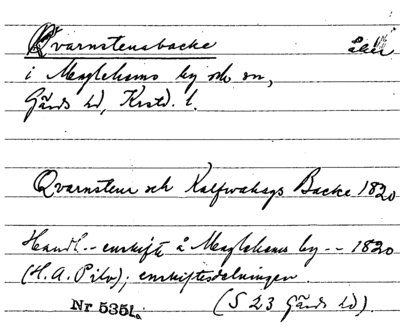 Qvarnstensbacke åker
i Maglehems by och sn,
Gärds hd, Krstd. l.
Qvarnstens och Kalfwahags Backe 1820
Handl. -- enskifte å Maglehems by -- 1820
(H. A. Pilo); enskiftesdelningen
Nr 535 (S 23 Gärds hd).